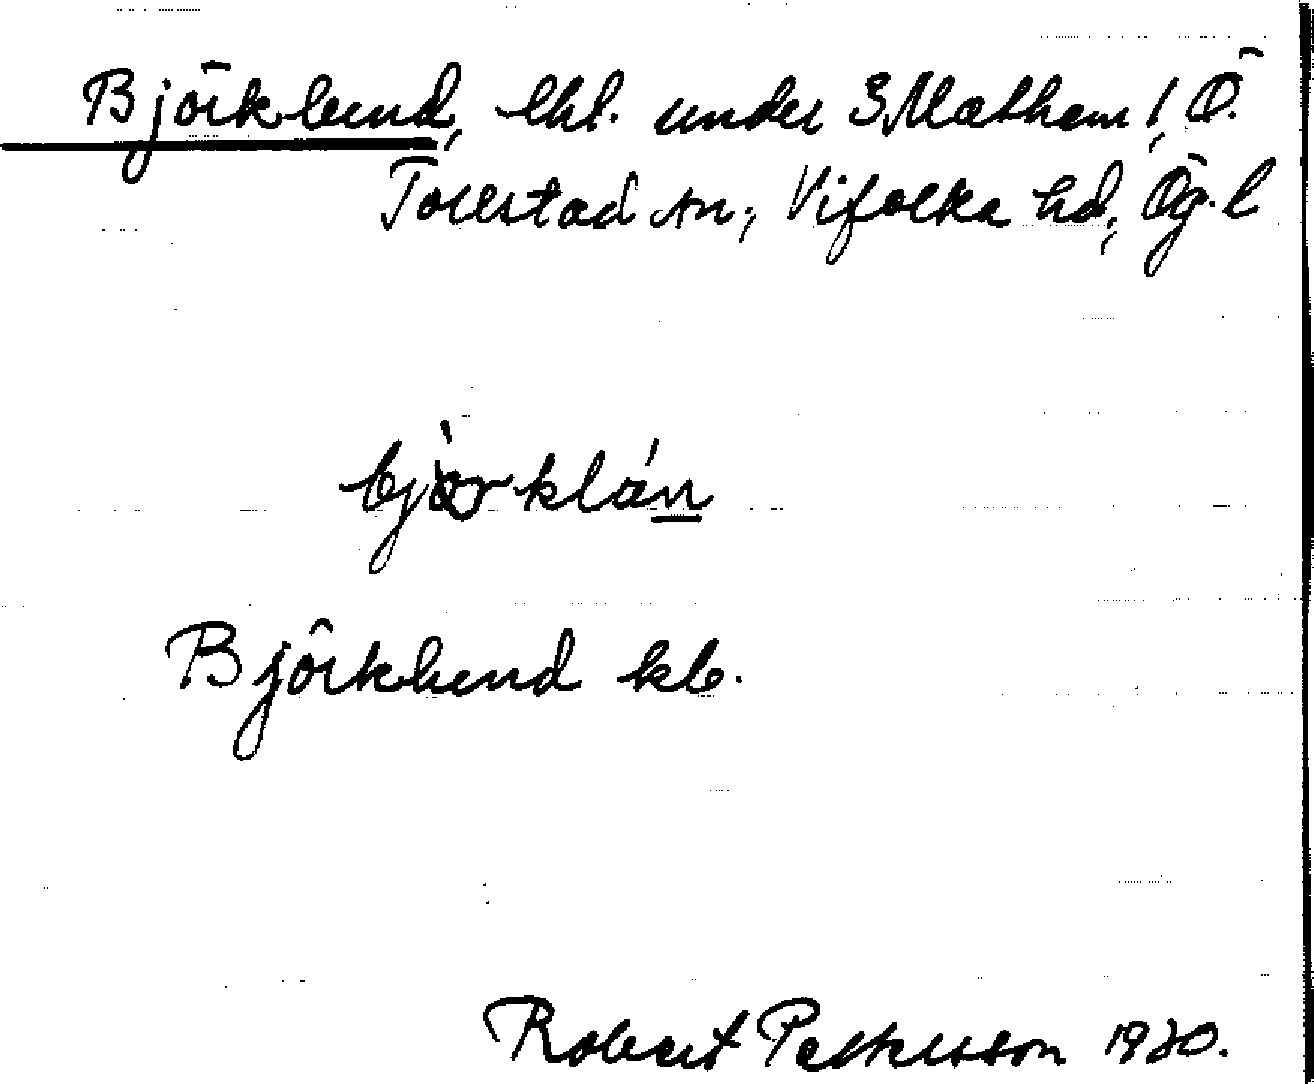 Björklund, lht. under 3 Mathem 1, Ö.
Tollstad sn, Vifolka hd, Ög. l
bjòrklán
Björklund kb.
Robert Pettersson 1920.